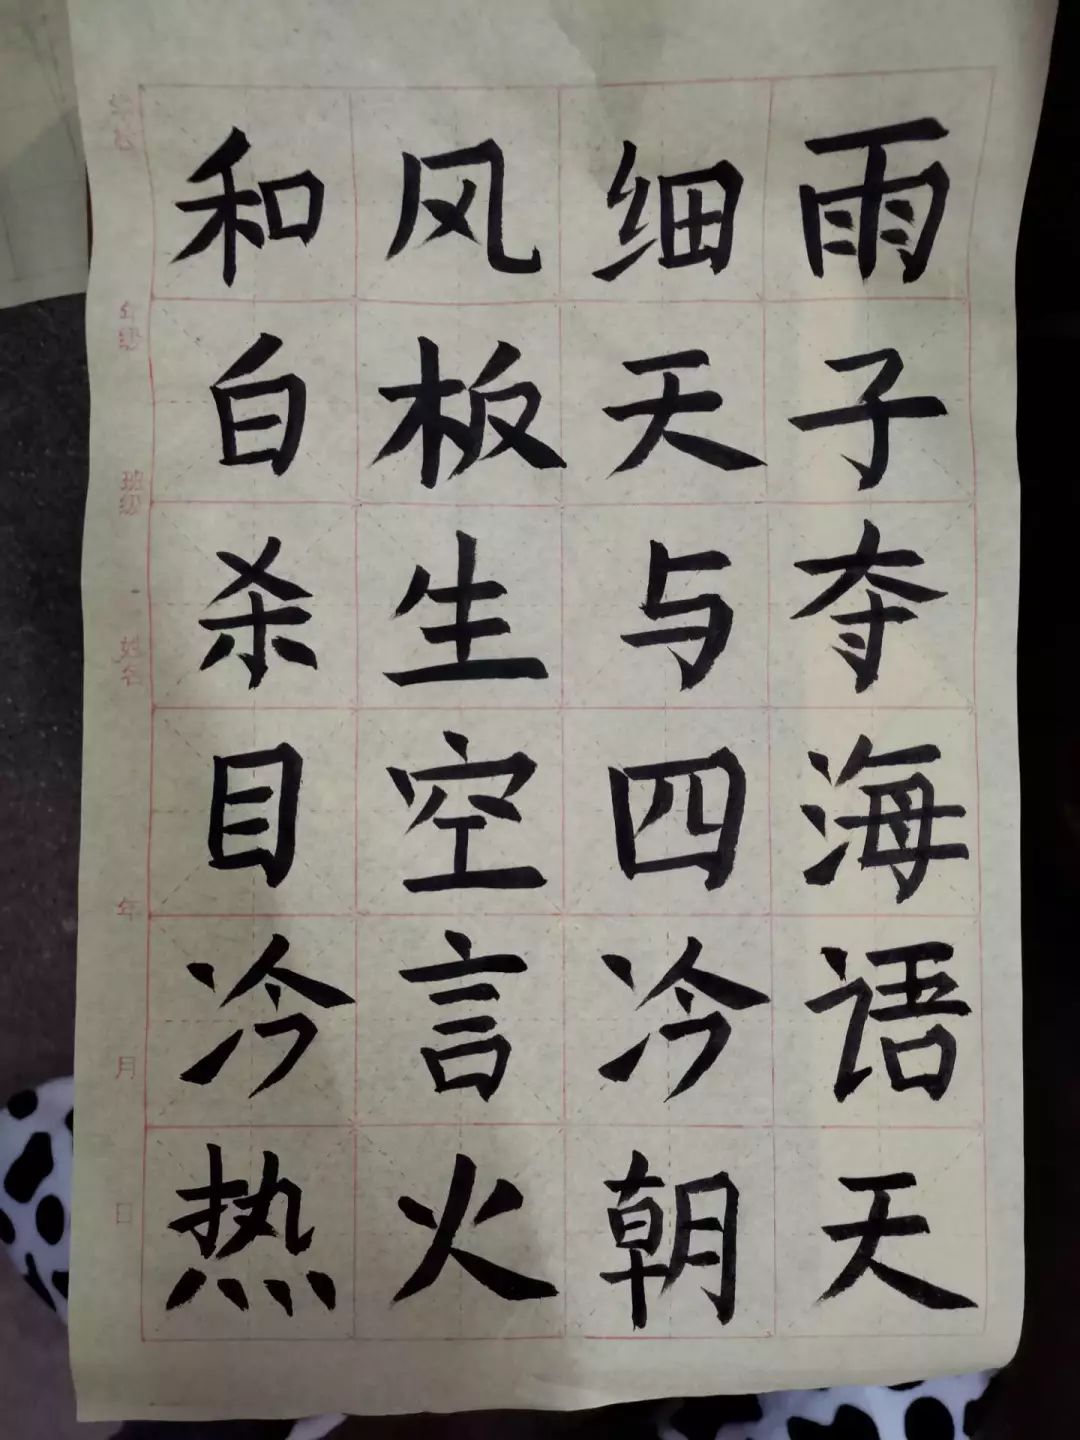 和风细雨
白板天子
杀生与夺
目空四海
冷言冷语
热火朝天
学校
年级
班级
姓名
年
月
日